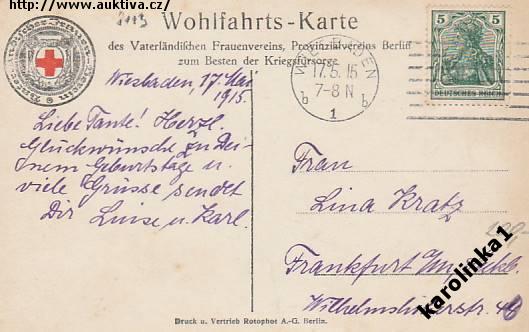 http://www.auktiva.cz/
2113
Wohlfahrts-Karte
des Vaterländischen Frauenvereins, Provinzialvereins Berlin
zum Besten der Kriegsfürsorge
Wiesbaden, 17. Mai
1915.
Liebe Tante! Herzl.
Glückwünsche zu Dei-
nem Geburtstage u.
viele Grüsse sendet
Dir Luise u. Karl.
17.5.15
7-8 N
b b
1
5 5
DEUTSCHES REICH
Frau
Lina Kratz
Frankfurt a/M
Wilhelmshöherstr.
karolinka1
Druck u. Vertrieb Rotophot A.-G. Berlin.